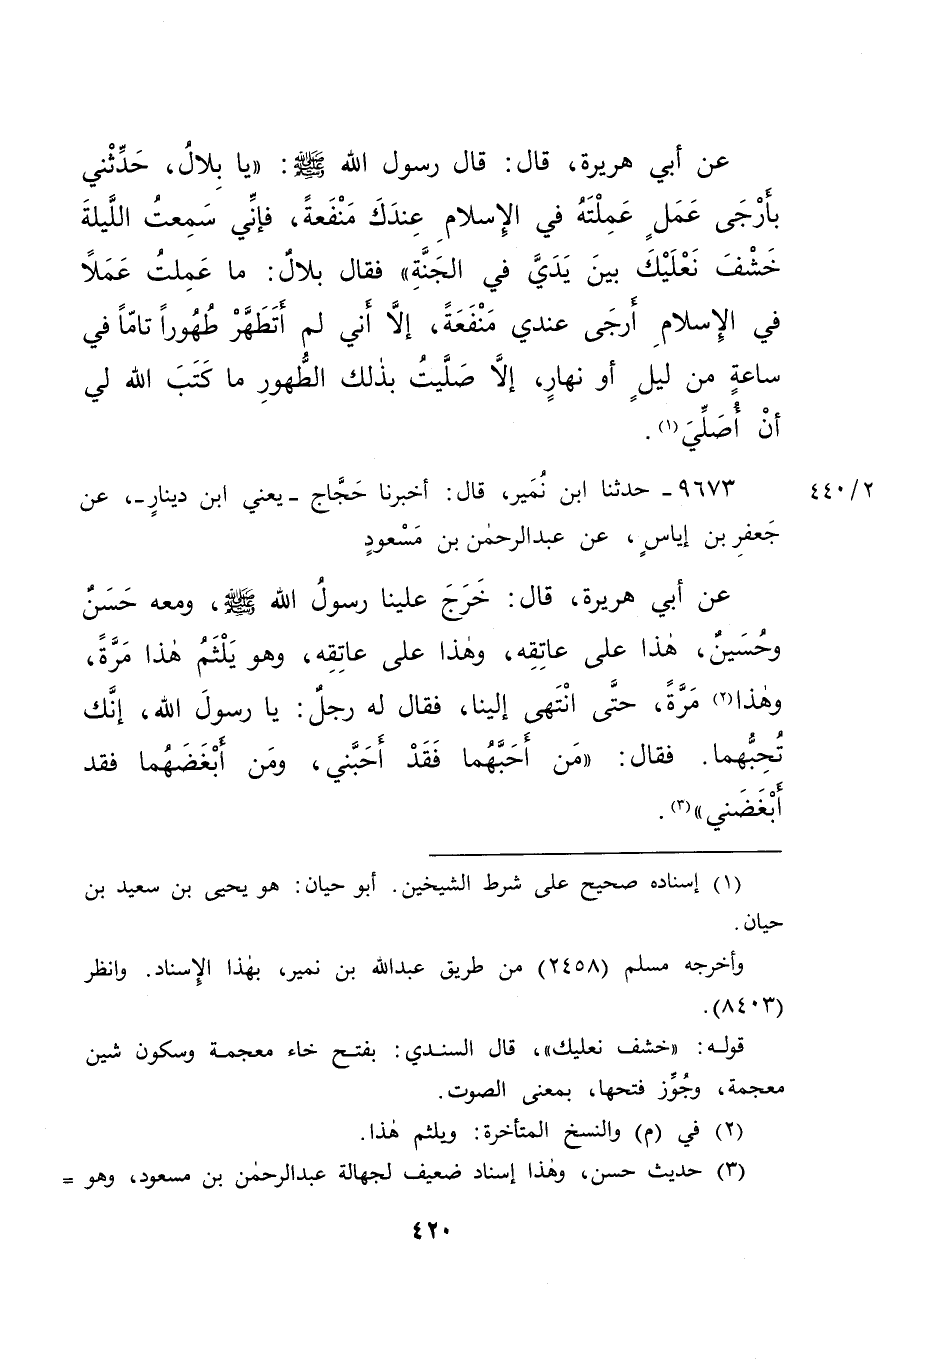 عن أبي هريرة، قال: قال رسول الله ﷺ: «يا بِلالُ، حَدِّثْني
بأَرْجَى عَمَلٍ عَمِلْتَهُ في الإِسلامِ عِندَكَ مَنْفَعةً، فإنِّي سَمِعتُ اللَّيلةَ
خَشْفَ نَعْلَيْكَ بينَ يَدَيَّ في الجَنَّةِ» فقال بلالٌ: ما عَمِلتُ عَمَلاً
في الإِسلامِ أَرجَى عندي مَنْفَعَةً، إلَّا أَني لم أَتَطَهَّرْ طُهُوراً تامّاً في
ساعةٍ من ليلٍ أو نهارٍ، إلَّا صَلَّيتُ بذٰلك الطُّهورِ ما كَتَبَ الله لي
أنْ أُصَلِّيَ(١).
٤٤٠/٢ ٩٦٧٣ـ حدثنا ابن نُمَير، قال: أخبرنا حَجَّاج ـ يعني ابن دينارٍ ـ، عن
جَعفرِ بن إياسٍ، عن عبدالرحمٰن بن مَسْعودٍ
عن أبي هريرة، قال: خَرَجَ علينا رسولُ الله ﷺ، ومعه حَسَنٌ
وحُسَينٌ، هٰذا على عاتِقِه، وهٰذا على عاتِقِه، وهو يَلْثَمُ هٰذا مَرَّةً،
وهٰذا(٢) مَرَّةً، حتَّى انْتَهى إلينا، فقال له رجلٌ: يا رسولَ الله، إنَّك
تُحِبُّهما. فقال: «مَن أَحَبَّهُما فَقَدْ أَحَبَّني، ومَن أَبْغَضَهُما فقد
أَبْغَضَني»(٣).
(١) إسناده صحيح على شرط الشيخين. أبو حيان: هو يحيى بن سعيد بن
حيان.
وأخرجه مسلم (٢٤٥٨) من طريق عبدالله بن نمير، بهٰذا الإِسناد. وانظر
(٨٤٠٣).
قوله: «خشف نعليك»، قال السندي: بفتح خاء معجمة وسكون شين
معجمة، وجُوِّز فتحها، بمعنى الصوت.
(٢) في (م) والنسخ المتأخرة: ويلثم هٰذا.
(٣) حديث حسن، وهٰذا إسناد ضعيف لجهالة عبدالرحمٰن بن مسعود، وهو =
٤٢٠